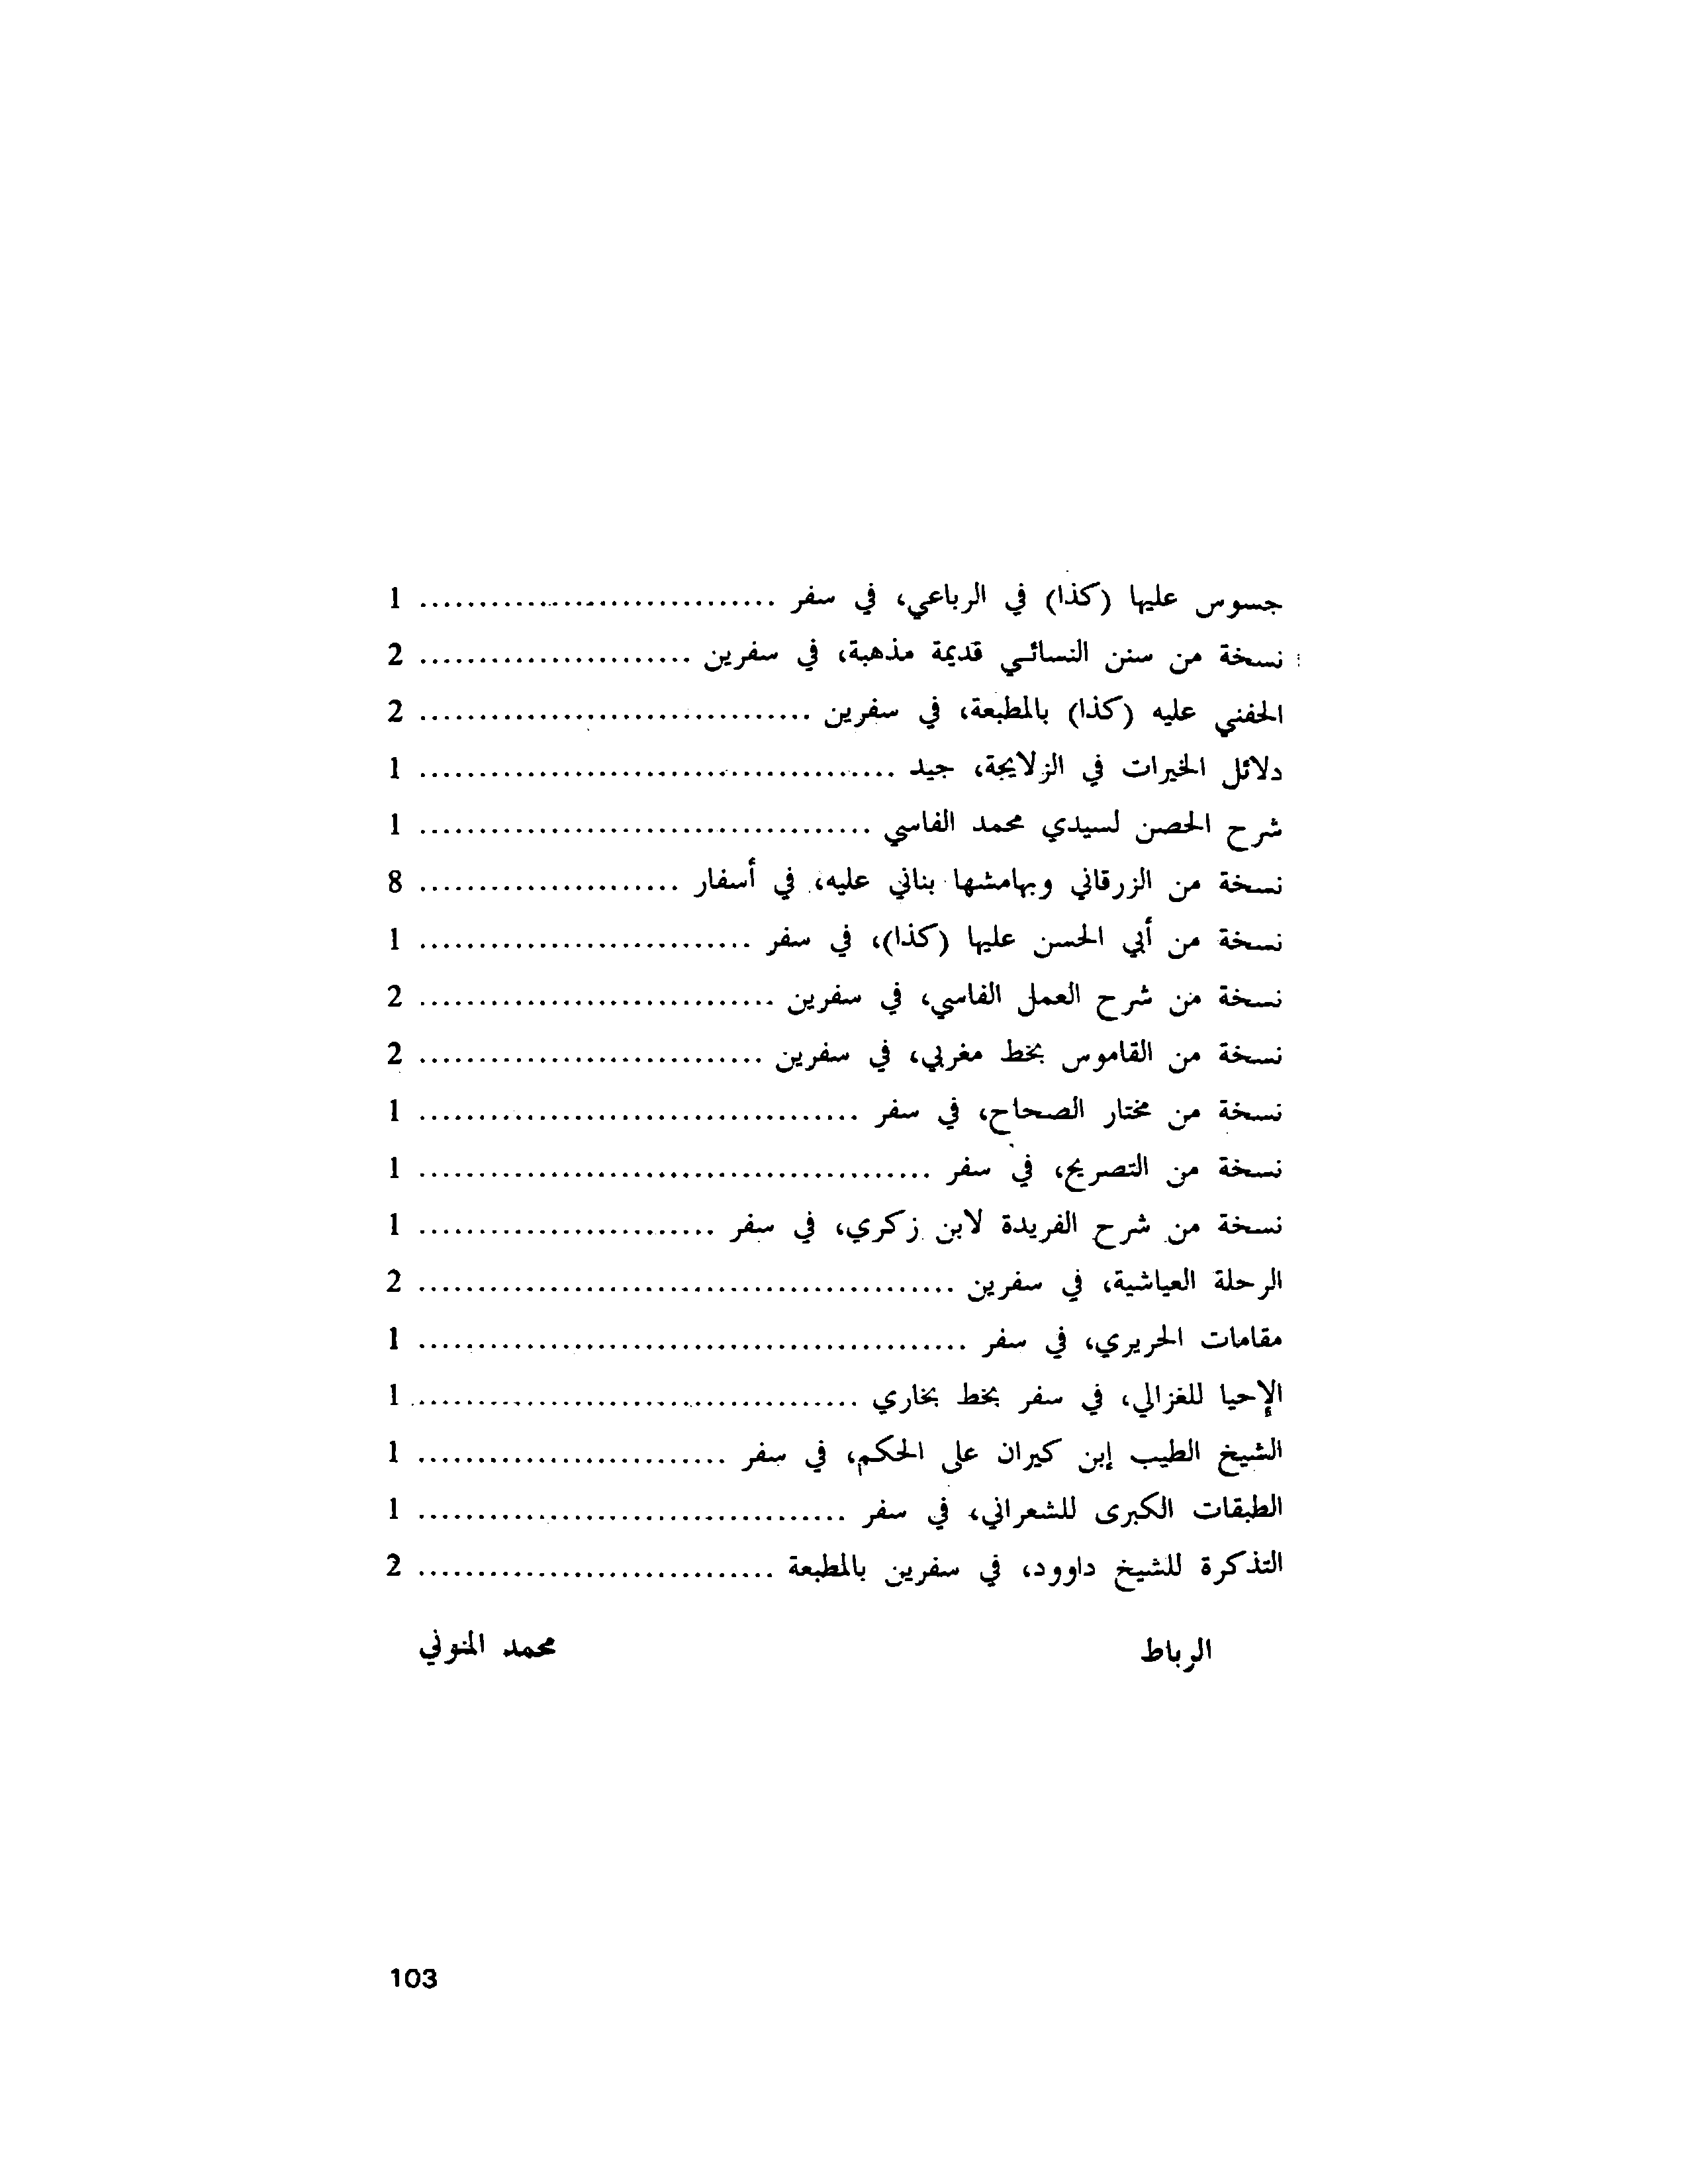 جسوس عليها (كذا) في الرباعي، في سفر .............................. 1
نسخة من سنن النسائي قديمة مذهبة، في سفرين ....................... 2
الحفني عليه (كذا) بالمطبعة، في سفرين ................................. 2
دلائل الخيرات في الزلايجة، جيد ........................................ 1
شرح الحصن لسيدي محمد الفاسي ...................................... 1
نسخة من الزرقاني وبهامشها بناني عليه، في أسفار ...................... 8
نسخة من أبي الحسن عليها (كذا)، في سفر ............................ 1
نسخة من شرح العمل الفاسي، في سفرين .............................. 2
نسخة من القاموس بخط مغربي، في سفرين ............................. 2
نسخة من مختار الصحاح، في سفر ..................................... 1
نسخة من التصريح، في سفر ........................................... 1
نسخة من شرح الفريدة لابن زكري، في سفر ......................... 1
الرحلة العياشية، في سفرين ............................................. 2
مقامات الحريري، في سفر .............................................. 1
الإحيا للغزالي، في سفر بخط بخاري ..................................... 1
الشيخ الطيب إبن كيران على الحكم، في سفر .......................... 1
الطبقات الكبرى للشعراني، في سفر .................................... 1
التذكرة للشيخ داوود، في سفرين بالمطبعة .............................. 2
الرباط محمد المنوني
103